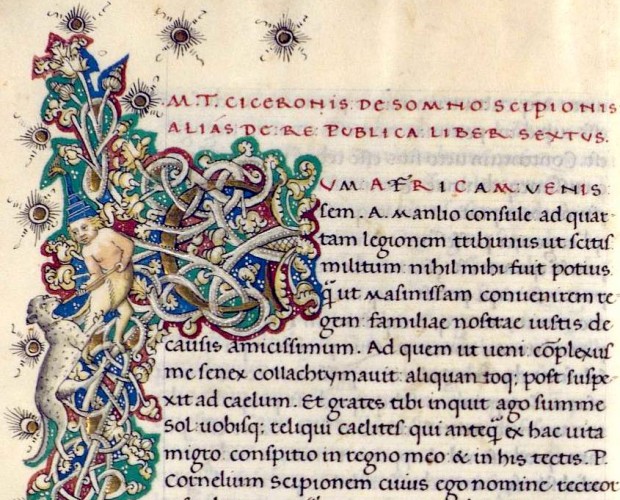 M. T. CICERONIS. DE SOMNO SCIPIONIS
ALIAS DE RE PUBLICA LIBER SEXTUS.
CUM AFRICAM VENIS
sem . A. Manlio consule ad quar
tam legionem ttibunus ut scitis
militum nihil mihi fuit potius.
q̃ ut Masinissam convenirem re
gem familiae nostrae iustis de
causis amicissimum. Ad quem ut veni cõplexus
me senex collachrymavit aliquan toq; post suspe
xit ad caelum. Et grates tibi inquit ago summe
sol vobisq; reliqui caelites qui anteq̃ ex hac vita
migro conspitio in regno meo & in his tectis. P.
Cornelium Scipionem cuius ego nomine recreor